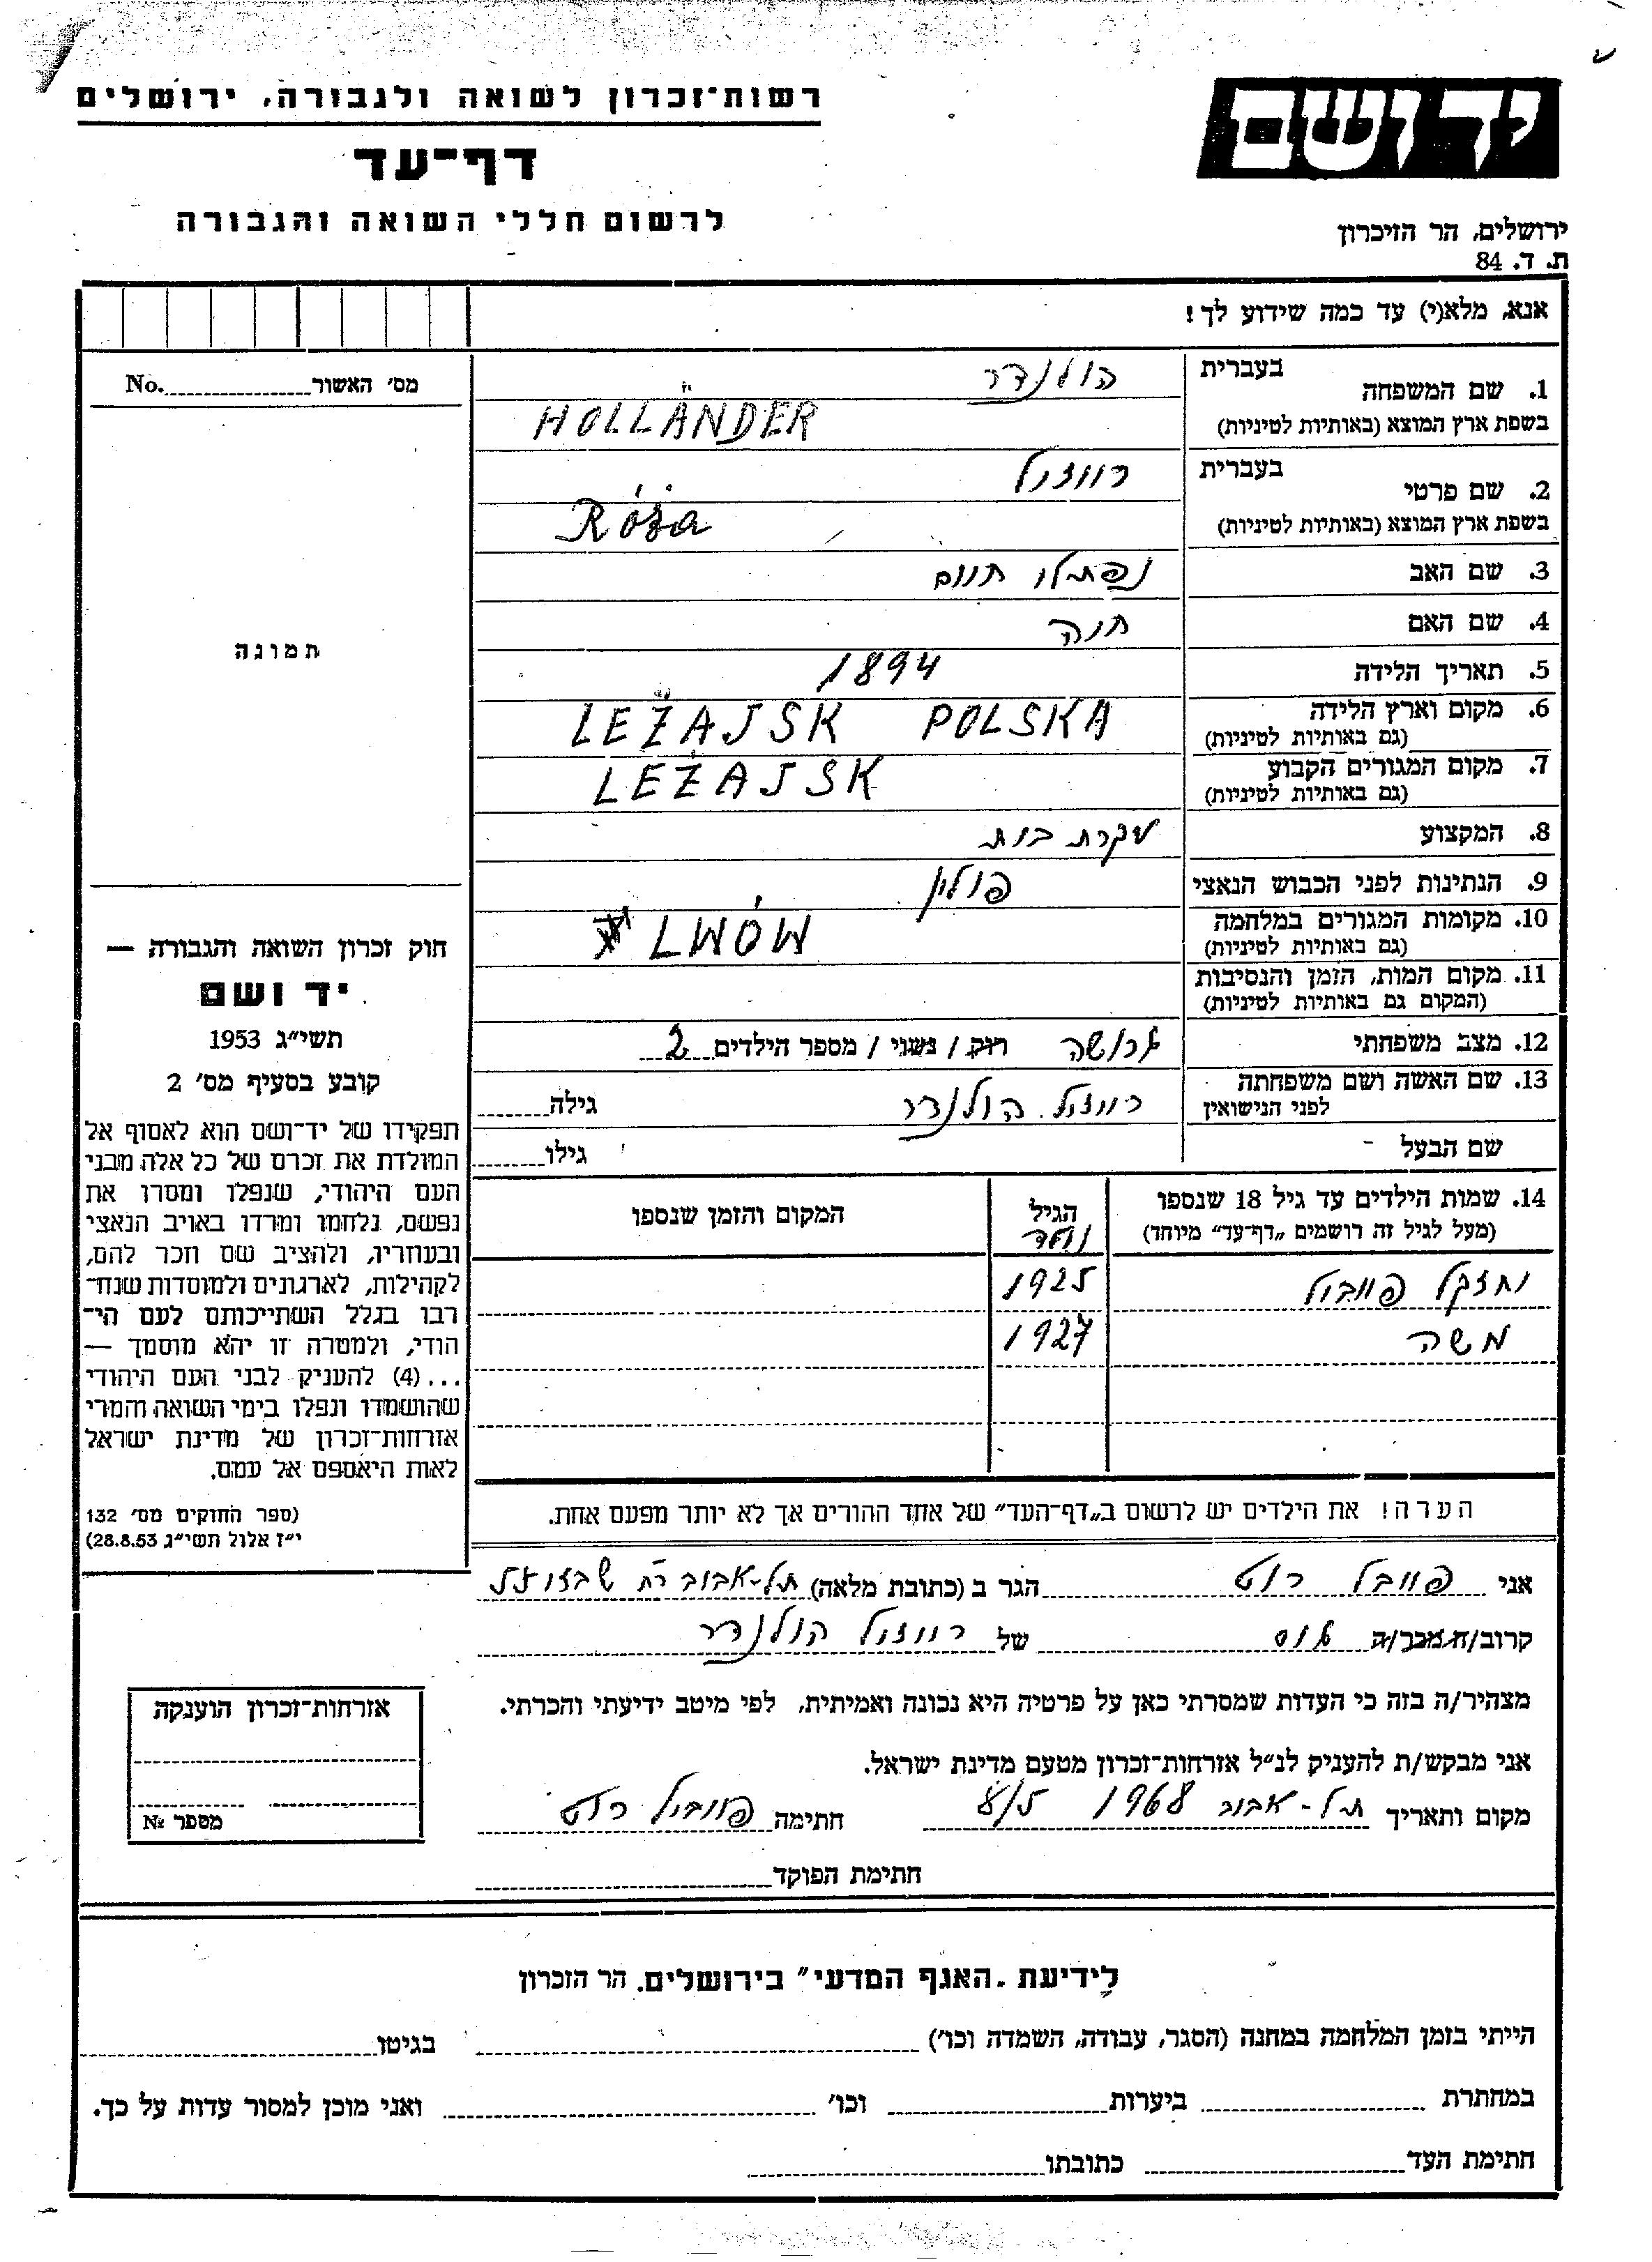 רשות־זכרון לשואה ולגבורה, ירושלים
דף־עד
לרשום חללי השואה והגבורה
יד ושם
ירושלים, הר הזיכרון
ת. ד. 84
אנא, מלא(י) עד כמה שידוע לך!
מס' האשור No.
תמונה
1. שם המשפחה בעברית הולנדר
בשפת ארץ המוצא (באותיות לטיניות) HOLLÄNDER
2. שם פרטי בעברית רייזיל
בשפת ארץ המוצא (באותיות לטיניות) Róża
3. שם האב נפתלי חיים
4. שם האם חנה
5. תאריך הלידה 1894
6. מקום וארץ הלידה (גם באותיות לטיניות) LEŻAJSK POLSKA
7. מקום המגורים הקבוע (גם באותיות לטיניות) LEŻAJSK
8. המקצוע עקרת בית
9. הנתינות לפני הכבוש הנאצי פולין
10. מקומות המגורים במלחמה (גם באותיות לטיניות) LWÓW
11. מקום המות, הזמן והנסיבות (המקום גם באותיות לטיניות)
12. מצב משפחתי גרושה רוק / נשוי / מספר הילדים 2
13. שם האשה ושם משפחתה לפני הנישואין רייזיל הולנדר גילה
שם הבעל גילו
14. שמות הילדים עד גיל 18 שנספו (מעל לגיל זה רושמים „דף־עד" מיוחד) הגיל נולד המקום והזמן שנספו
יחזקל פייביל 1925
משה 1927
הערה! את הילדים יש לרשום ב„דף־העד" של אחד ההורים אך לא יותר מפעם אחת.
חוק זכרון השואה והגבורה —
יד ושם
תשי"ג 1953
קובע בסעיף מס' 2
תפקידו של יד־ושם הוא לאסוף אל
המולדת את זכרם של כל אלה מבני
העם היהודי, שנפלו ומסרו את
נפשם, נלחמו ומרדו באויב הנאצי
ובעוזריו, ולהציב שם וזכר להם,
לקהילות, לארגונים ולמוסדות שנח־
רבו בגלל השתייכותם לעם הי־
הודי, ולמטרה זו יהא מוסמך —
...(4) להעניק לבני העם היהודי
שהושמדו ונפלו בימי השואה והמרי
אזרחות־זכרון של מדינת ישראל
לאות היאספם אל עמם.
(ספר החוקים מס' 132
י"ז אלול תשי"ג 28.8.53)
אני פייבל רוט הגר ב (כתובת מלאה) תל-אביב רח
קרוב/ה מכר/ה גיס של רייזיל הולנדר
מצהיר/ה בזה כי העדות שמסרתי כאן על פרטיה היא נכונה ואמיתית, לפי מיטב ידיעתי והכרתי.
אני מבקש/ת להעניק לנ"ל אזרחות־זכרון מטעם מדינת ישראל.
מקום ותאריך תל-אביב 1968 חתימה פייביל רוט
חתימת הפוקד
אזרחות־זכרון הוענקה
מספר №
לידיעת „האגף המדעי" בירושלים, הר הזכרון
הייתי בזמן המלחמה במחנה (הסגר, עבודה, השמדה וכו') בגיטו
במחתרת ביערות וכו' ואני מוכן למסור עדות על כך.
חתימת העד כתובתו